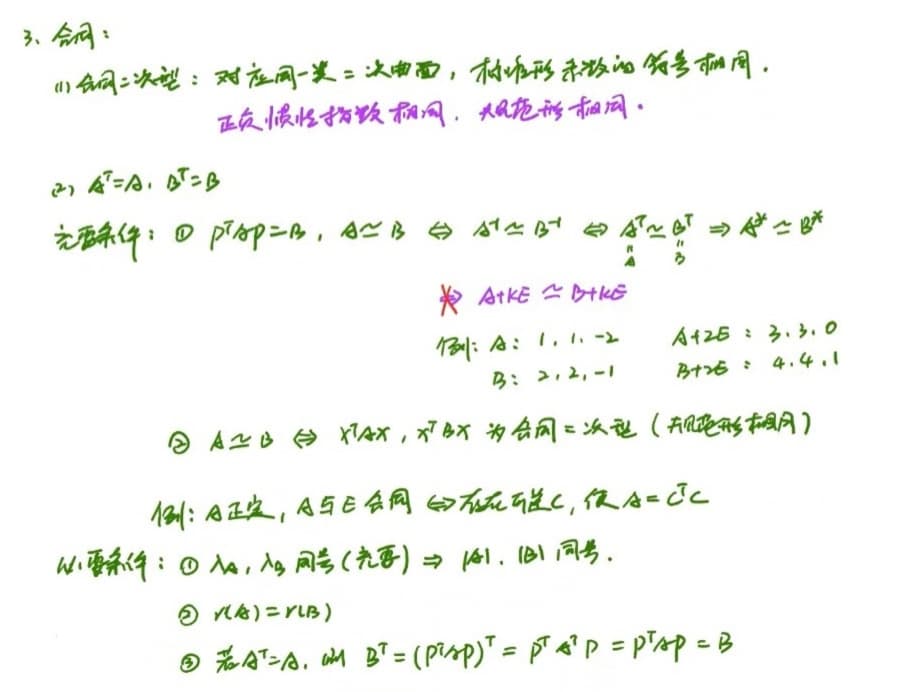 3、合同：
(1) 合同二次型：对应同一类二次曲面，标准形系数的符号相同．
正负惯性指数相同．规范形相同．
(2) Aᵀ=A，Bᵀ=B
充要条件：① PᵀAP=B，A≃B ⇔ A⁻¹≃B⁻¹ ⇔ Aᵀ≃Bᵀ ⇒ A*≃B*
" "
A B
⇔ A+kE≃B+kE
例：A：1，1，-2 A+2E：3，3，0
B：2，2，-1 B+2E：4，4，1
② A≃B ⇔ XᵀAX，XᵀBX 为合同二次型（规范形相同）
例：A正定，A与E合同 ⇔ 存在可逆C，使A=CᵀC
必要条件：① λA，λB同号（充要）⇒ |A|．|B|同号．
② r(A)=r(B)
③ 若Aᵀ=A，则 Bᵀ=(PᵀAP)ᵀ=PᵀAᵀP=PᵀAP=B